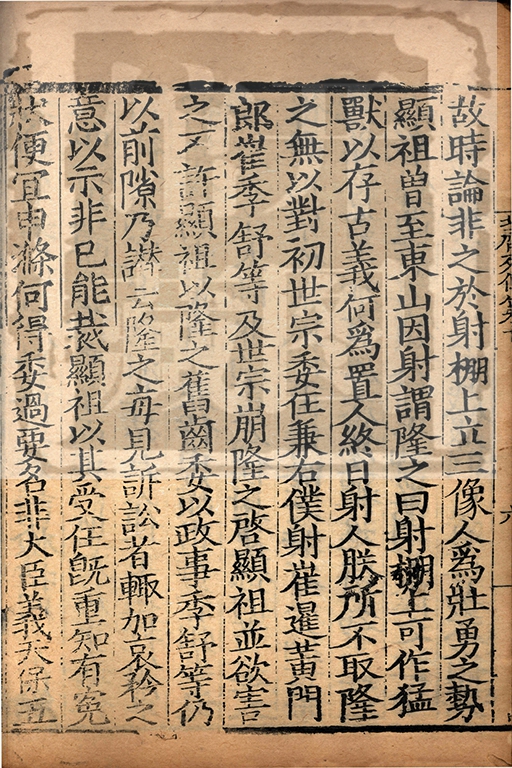 故時論非之於射棚上立三像人爲壯勇之勢
顯祖曽至東山因射謂隆之曰射棚上可作猛
獸以存古義何爲置人終日射人朕所不取隆
之無以對初世宗委任兼右僕射崔暹黄門
郎崔季舒等及世宗崩隆之啓顯祖並欲害
之不許顯祖以隆之舊齒委以政事季舒等仍
以前隙乃譖云隆之每見訴訟者輙加哀矜之
意以示非已能裁顯祖以其受任旣重知有寃
狀便宜申滌何得委過要名非大臣義天保五